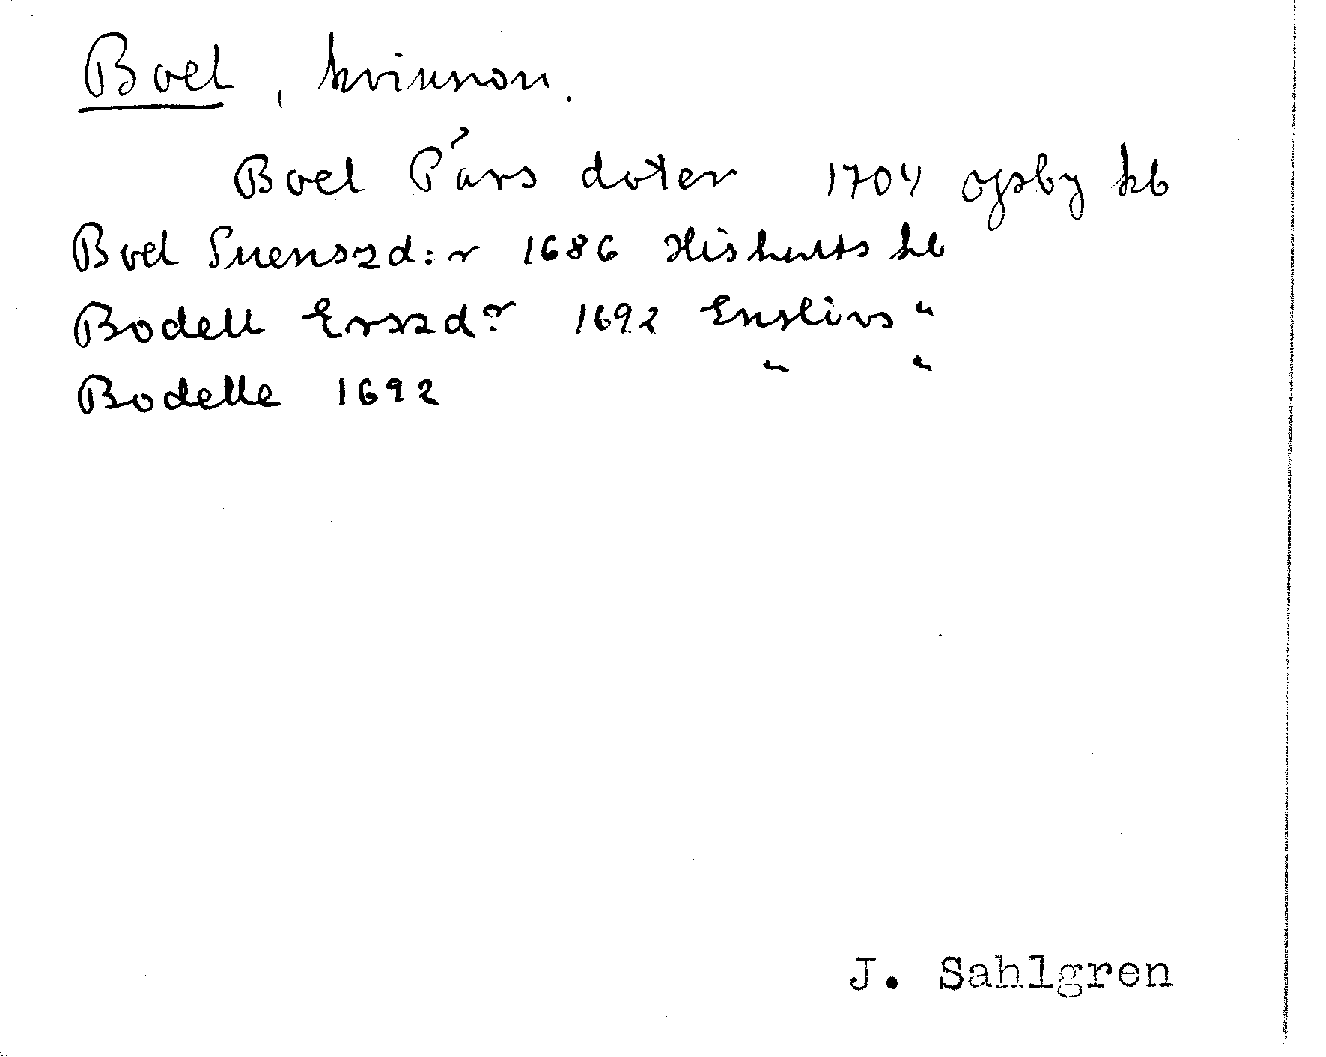 Boel, kvinnon.
Boel Pärs doter 1704 Opsby kb
Boel Suenszd:r 1686 Hishults kb
Bodell Erszdr 1692 Enslövs "
Bodelle 1692 " "
J. Sahlgren